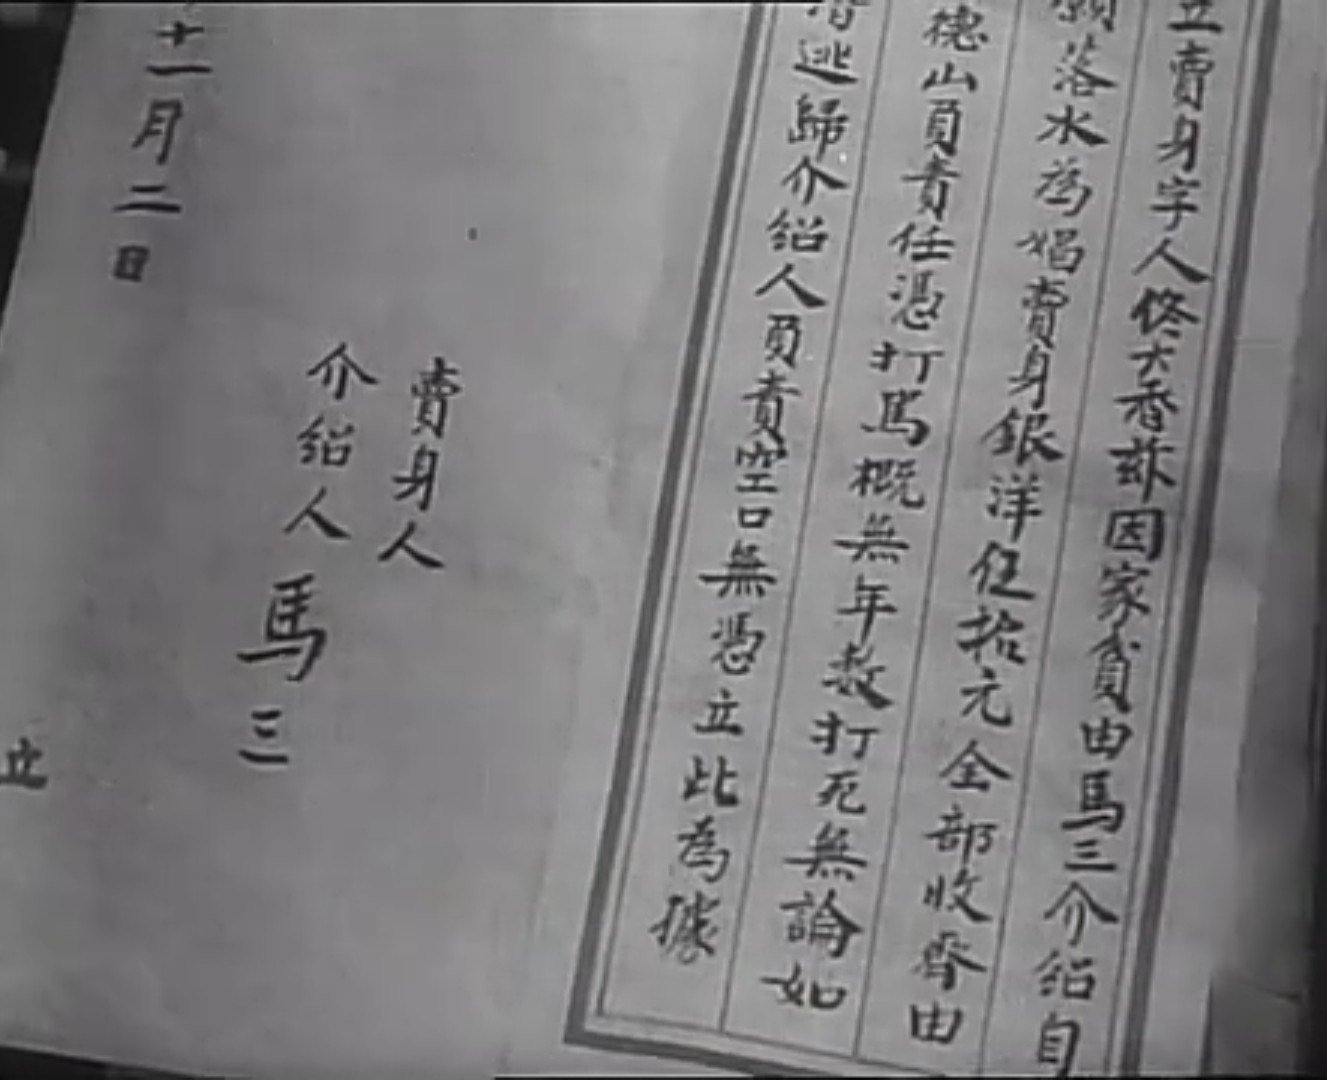 立賣身字人佟大香茲因家貧由馬三介紹自
願落水為娼賣身銀洋伍拾元全部收齊由
德山負責任憑打駡概無年數打死無論如
潛逃歸介紹人負責空口無憑立此為據
賣身人
介紹人 馬三
十一月二日
立